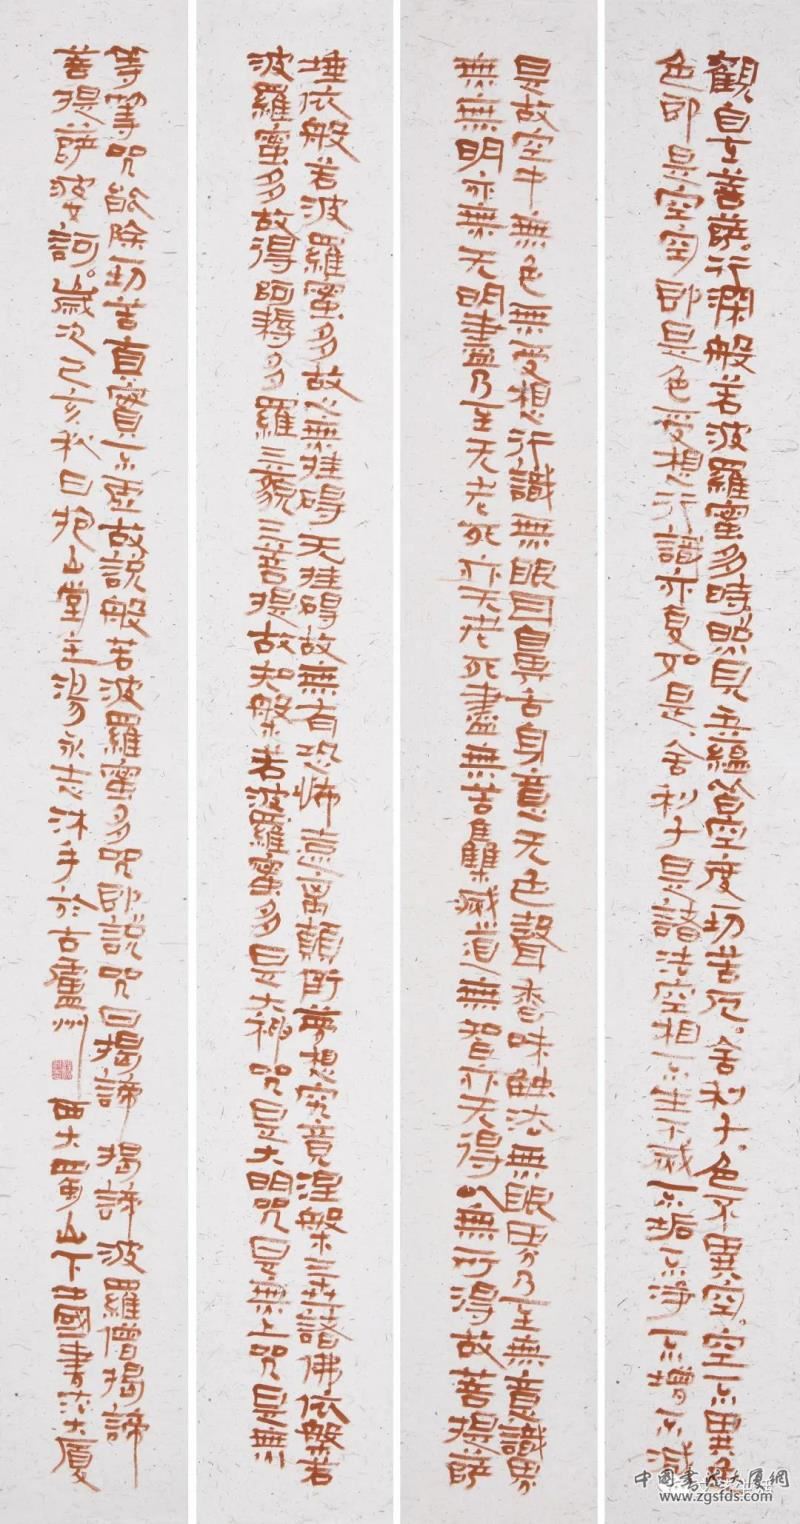 觀自在菩薩行深般若波羅蜜多時照見五蘊皆空度一切苦厄舍利子色不異空空不異色
色即是空空即是色受想行識亦复如是舍利子是諸法空相不生不滅不垢不淨不增不減
是故空中無色無受想行識無眼耳鼻舌身意无色聲香味触法無眼界乃至無意識界
無無明亦無无明盡乃至无老死亦无老死盡無苦集滅道無智亦无得以無所得故菩提薩
埵依般若波羅蜜多故心無挂碍无挂碍故無有恐怖遠离顛倒夢想究竟涅槃三世諸佛依般若
波羅蜜多故得阿耨多羅三藐三菩提故知般若波羅蜜多是大神咒是大明咒是無上咒是無
等等咒能除一切苦真實不虛故說般若波羅蜜多咒即說咒曰揭諦揭諦波羅揭諦波羅僧揭諦
菩提薩婆訶歲次己亥秋日抱山堂主湯永志沐手於古廬州西大蜀山下中國書法大廈
中国書法大厦網
www.zgsfds.com